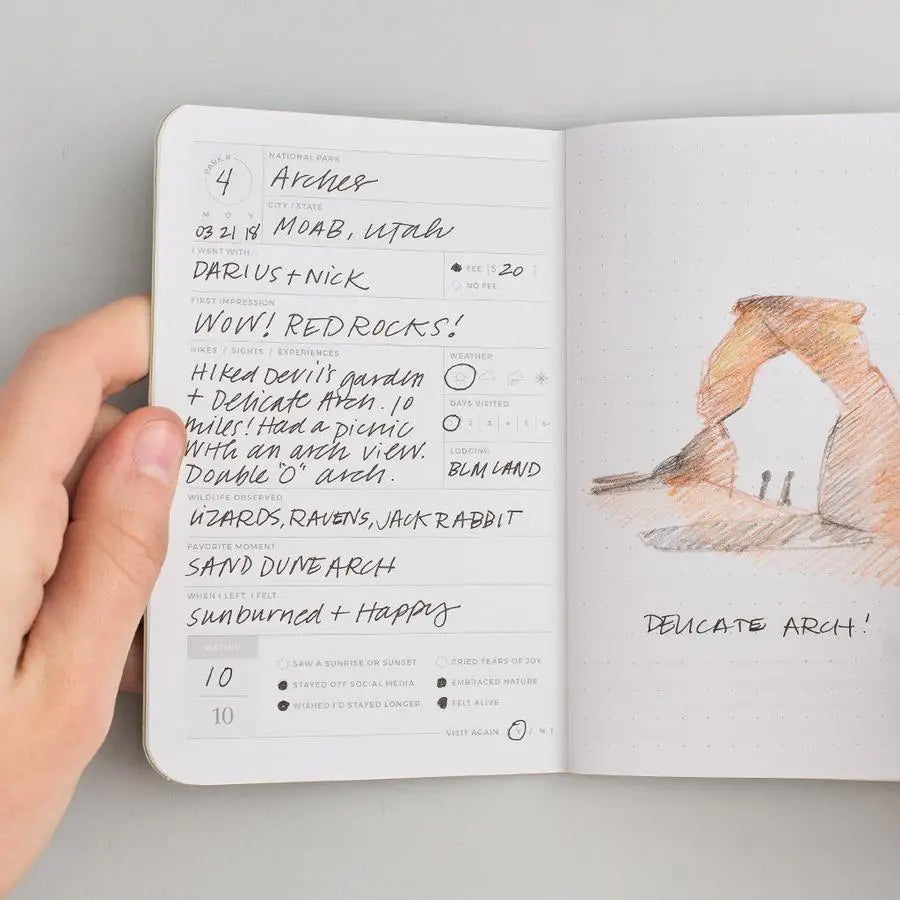 PARK #
4
NATIONAL PARK
Arches
CITY / STATE
MOAB, UTah
M D Y
03 21 18
I WENT WITH...
DARIUS + NICK
FEE [$ 20 ]
NO FEE
FIRST IMPRESSION
WOW! RED ROCKS!
HIKES / SIGHTS / EXPERIENCES
HIKed Devil's garden
+ Delicate Arch. 10
miles! Had a picnic
with an arch view.
Double "O" arch.
WEATHER
DAYS VISITED
1 2 3 4 5 6+
LODGING
BLM LAND
WILDLIFE OBSERVED
LIZARDS, RAVENS, JACK RABBIT
FAVORITE MOMENT
SAND DUNE ARCH
WHEN I LEFT, I FELT...
sunburned + Happy
RATING
10
10
SAW A SUNRISE OR SUNSET
CRIED TEARS OF JOY
STAYED OFF SOCIAL MEDIA
EMBRACED NATURE
WISHED I'D STAYED LONGER
FELT ALIVE
VISIT AGAIN [ Y / N ]
DELICATE ARCH!